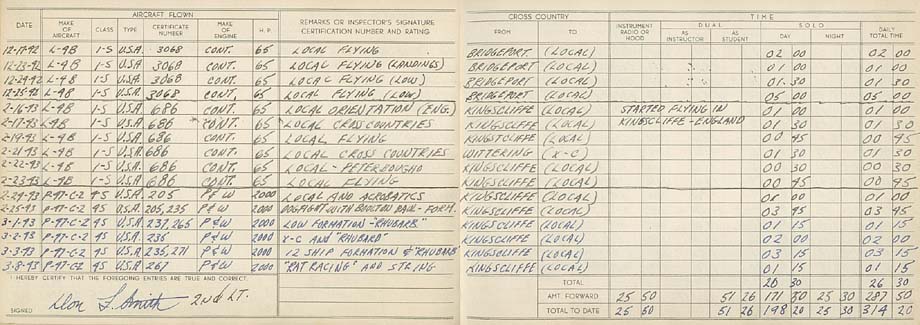 AIRCRAFT FLOWN
DATE MAKE OF AIRCRAFT CLASS TYPE CERTIFICATE NUMBER MAKE OF ENGINE H.P. REMARKS OR INSPECTOR'S SIGNATURE CERTIFICATION NUMBER AND RATING
12-17-42 L-4B 1-S U.S.A. 3068 CONT. 65 LOCAL FLYING
12-23-42 L-4B 1-S U.S.A. 3068 CONT. 65 LOCAL FLYING (LANDINGS)
12-24-42 L-4B 1-S U.S.A. 3068 CONT. 65 LOCAL FLYING (LOW)
12-25-42 L-4B 1-S U.S.A. 3068 CONT. 65 LOCAL FLYING (LOW)
2-16-43 L-4B 1-S U.S.A. 686 CONT. 65 LOCAL ORIENTATION (ENG.)
2-17-43 L-4B 1-S U.S.A. 686 CONT. 65 LOCAL CROSS COUNTRIES
2-19-43 L-4B 1-S U.S.A. 686 CONT. 65 LOCAL FLYING
2-21-43 L-4B 1-S U.S.A. 686 CONT. 65 LOCAL CROSS COUNTRIES
2-22-43 L-4B 1-S U.S.A. 686 CONT. 65 LOCAL - PETERBOUSHO
2-23-43 L-4B 1-S U.S.A. 686 CONT. 65 LOCAL FLYING
2-24-43 P-47-C-2 4S U.S.A. 205 P&W 2000 LOCAL AND ACROBATICS
2-25-43 P-47-C-2 4S U.S.A. 205, 235 P&W 2000 DOGFIGHT WITH BOULTON PAUL - FORM.
3-1-43 P-47-C-2 4S U.S.A. 237, 265 P&W 2000 LOW FORMATION - "RHUBARB"
3-2-43 P-47-C-2 4S U.S.A. 236 P&W 2000 X-C AND "RHUBARB"
3-3-43 P-47-C-2 4S U.S.A. 235, 271 P&W 2000 12 SHIP FORMATION & "RHUBARB"
3-8-43 P-47-C2 4S U.S.A. 267 P&W 2000 "RAT RACING" AND STRING
I HEREBY CERTIFY THAT THE FOREGOING ENTRIES ARE TRUE AND CORRECT.
SIGNED Don L. Smith 2nd LT.
CROSS COUNTRY TIME
FROM TO INSTRUMENT RADIO OR HOOD DUAL AS INSTRUCTOR AS STUDENT SOLO DAY NIGHT DAILY TOTAL TIME
BRIDGEPORT (LOCAL) 02 00 02 00
BRIDGEPORT (LOCAL) 01 00 01 00
BRIDGEPORT (LOCAL) 01 30 01 30
BRIDGEPORT (LOCAL) 05 00 05 00
KINGSCLIFFE (LOCAL) STARTED FLYING IN 01 00 01 00
KINGSCLIFFE (LOCAL) KINGSCLIFFE - ENGLAND 01 30 01 30
KINGSCLIFFE (LOCAL) 00 45 00 45
WITTERING (X-C) 01 30 01 30
KINGSCLIFFE (LOCAL) 00 30 00 30
KINGSCLIFFE (LOCAL) 00 45 00 45
KINGSCLIFFE (LOCAL) 01 00 01 00
KINGSCLIFFE (LOCAL) 03 45 03 45
KINGSCLIFFE (LOCAL) 01 15 01 15
KINGSCLIFFE (LOCAL) 02 00 02 00
KINGSCLIFFE (LOCAL) 03 15 03 15
KINGSCLIFFE (LOCAL) 01 15 01 15
TOTAL 26 30 26 30
AMT FORWARD 25 50 51 26 171 50 25 30 287 50
TOTAL TO DATE 25 50 51 26 198 20 25 30 314 20